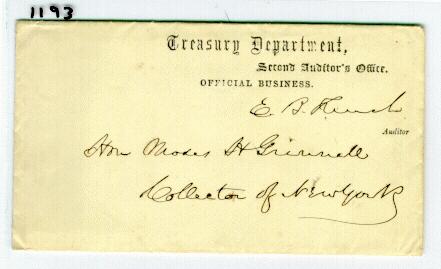 1193
Treasury Department,
Second Auditor's Office.
OFFICIAL BUSINESS.
E. B. French
Auditor
Hon Moses H Grinnell
Collector of New York